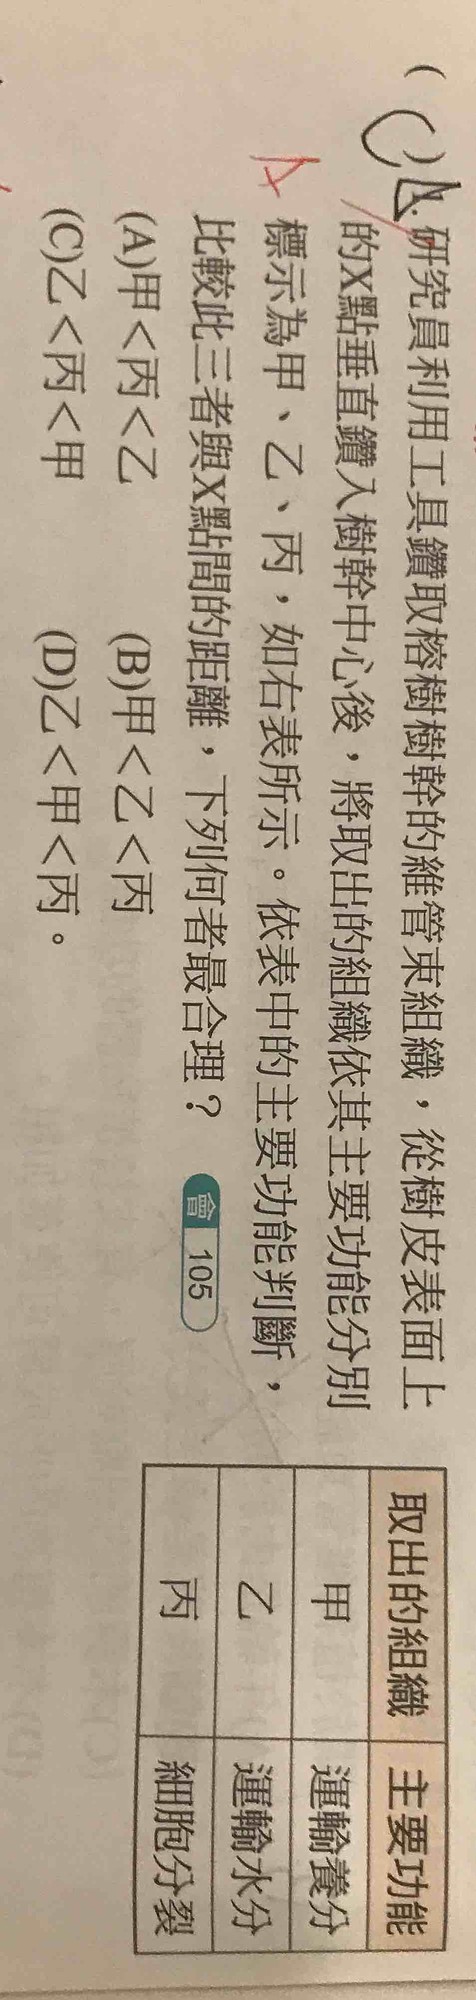 ( C )
研究員利用工具鑽取榕樹樹幹的維管束組織，從樹皮表面上
的X點垂直鑽入樹幹中心後，將取出的組織依其主要功能分別
標示為甲、乙、丙，如右表所示。依表中的主要功能判斷，
比較此三者與X點間的距離，下列何者最合理？ 會 105
(A)甲＜丙＜乙 (B)甲＜乙＜丙
(C)乙＜丙＜甲 (D)乙＜甲＜丙。
A
取出的組織 主要功能
甲 運輸養分
乙 運輸水分
丙 細胞分裂